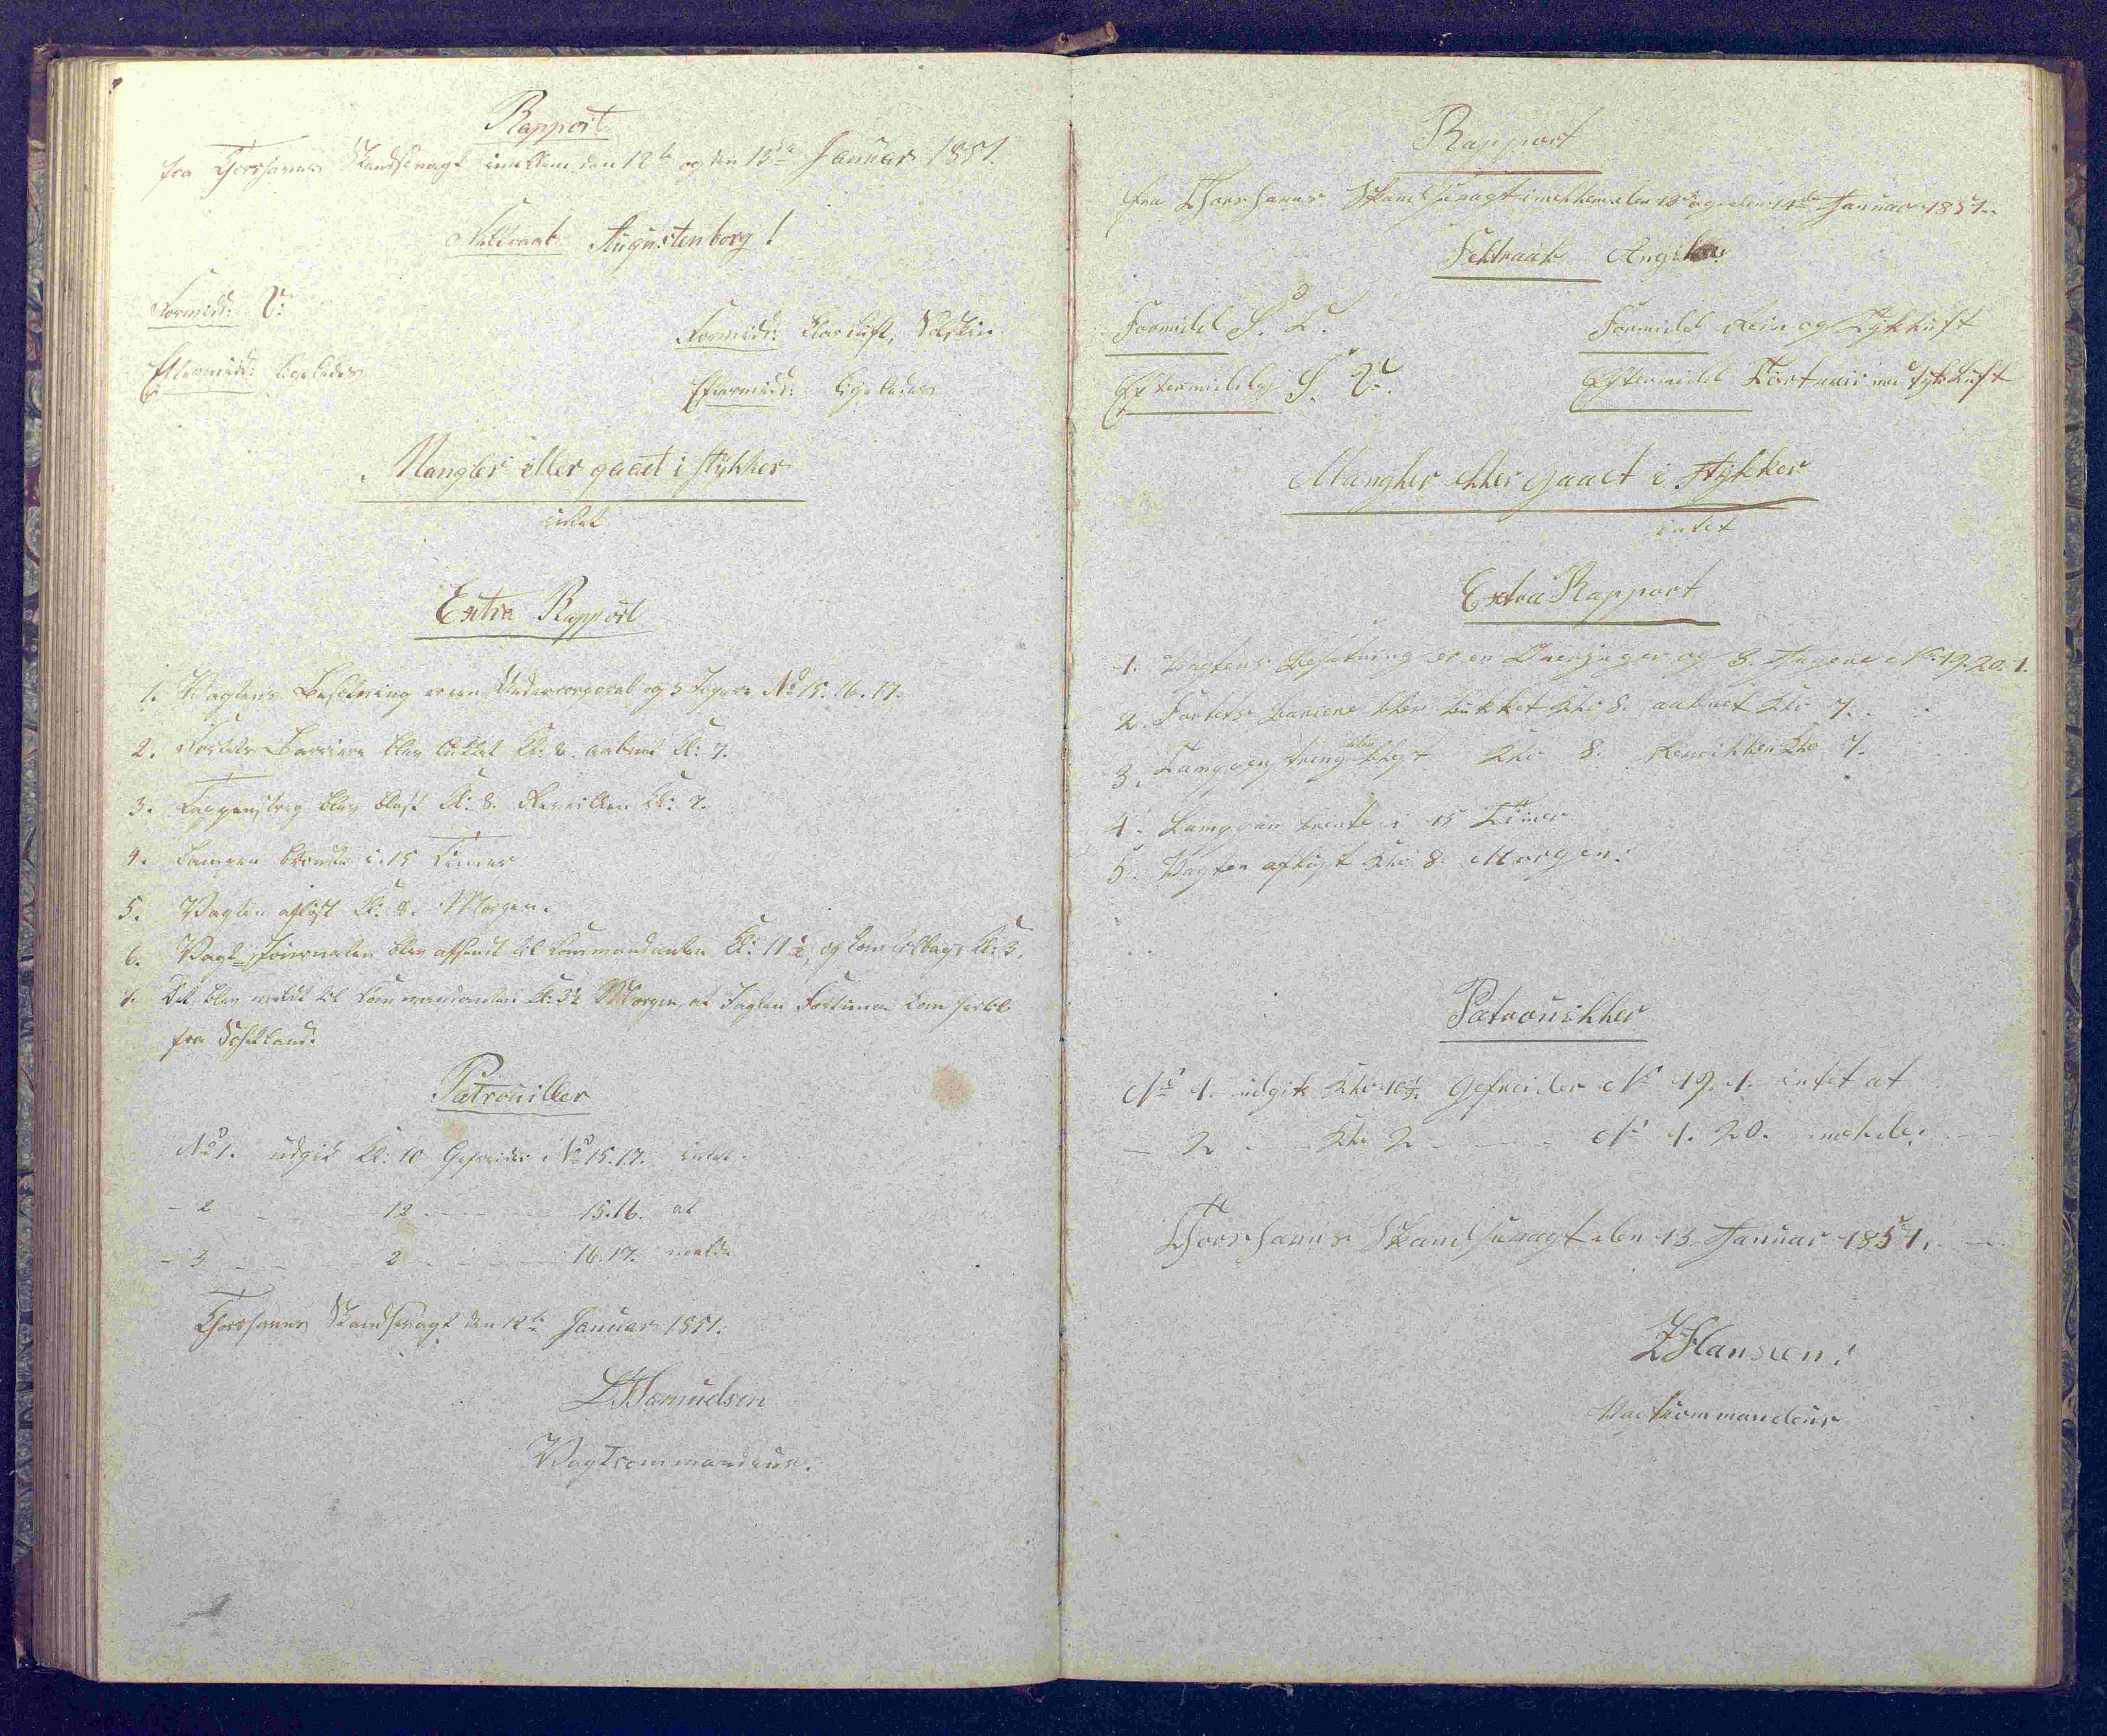 Rapport
fra Thorshavns Skandsevagt imellem den 12te og den 13de Januar 1851.
Feltraab Augustenborg!
Formidd: V:
Formidd: Klar Luft, Solskin
Eftermidd: ligeledes
Eftermidd: ligeledes
Mangler eller gaaet i stykker
intet
Extra Rapport
1. Vagtens Besætning er en Undercorporal og 3 Jægere No 15. 16. 17.
2. Fortets Barriere blev lukket Kl: 8. aabnet Kl: 7.
3. Tappenstreg blev blæst Kl: 8. Reveillen Kl: 7.
4. Lampen brændte i 15 Timer
5. Vagten afløst Kl: 8. Morgen.
6. Vagt-Journalen blev afsendt til Commandanten Kl: 11½, og kom tilbage Kl: 3.
7. Det blev meldt til Commandanten Kl: 3½ Morgen at Jagten Fortuna kom hertil
fra Schetland.
Patrouiller
No 1. udgik Kl: 10 Gefreider No 15. 17. intet
- 2 - - 12 - - 15. 16. at
- 3 - - 2 - - 16. 17. melde
Thorshavns Skandsevagt den 12te Januar 1851.
Samuelsen
Vagtcommandeur.
Rapport
fra Thorshavns Skandsevagt imellem den 13de og den 14de Januar 1851.
Feltraab
Formidd S. V.
Formidd Rein og Tyk Luft
Eftermiddag S. V.
Eftermidd Tort med Tyk Luft
Mangler eller gaaet i Stykker
intet
Extra Rapport
1. Vagtens Besetning er en Overjæger og 3. Jægere No. 19. 20. 1.
2. Fortets Bariere blev lukket Klo 8. aabnet Klo 7.
3. Tamppenstreng blev blest Klo 8. Revillen Klo 7.
4. Lamppen brente i 15 Timer
5. Vagten afløst Klo 8. Morgen.
Patrouiller
No 1. udgik Klo 10½. Gefreider No 19. 1. intet at
- 2 - Klo 2 - - No 1. 20. melde.
Thorshavns Skandsevagt den 13 Januar 1851.
Hansen.
Vagtkommandeur